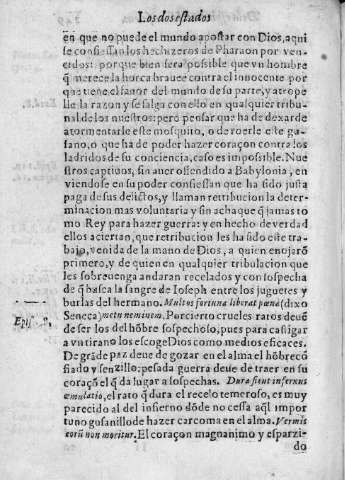 Los dos estados
en que no puede el mundo apostar con Dios, aqui
se confiessan los hechizeros de Pharaon por ven-
cidos: porque bien sera possible que vn hombre
q̃ merece la horca brauee contra el innocente por
que tiene el fauor del mundo de su parte, y atrope
lle la razon y se salga con ello en qualquier tribu-
nal de los nuestros: pero pensar que ha de dexar de
atormentarle este mosquito, o de roerle este gu-
sano, o que há de poder hazer coraçon contra los
ladridos de su conciencia, caso es impossible. Nue
stros captiuos, sin auer offendido a Babylonia, en
viendose en su poder confiessan que ha sido justa
paga de sus delictos, y llaman retribucion la deter-
minacion mas voluntaria y sin achaque q̃ jamas to
mo Rey para hazer guerra: y en hecho de verdad
ellos aciertan, que retribucion les ha sido este tra-
bajo, venida de la mano de Dios, a quien enojarõ
primero, y de quien en qualquier tribulacion que
les sobreuenga andaran recelados y con sospecha
de q̃ busca la sangre de Ioseph entre los juguetes y
burlas del hermano. Multos fortuna liberat pœna (dixo
Seneca) metu neminem. Por cierto crueles ratos deuẽ
Epis.
de ser los del hõbre sospechoso, pues para castigar
a vn tirano los escoge Dios como medios eficaces.
De grãde paz deue de gozar en el alma el hõbre cõ
fiado y senzillo: pesada guerra deue de traer en su
coraçõ el q̃ da lugar a sospechas. Dura sicut infernus
æmulatio, el rato q̃ dura el recelo temeroso, es muy
parecido al del infierno dõde no cessa aq̃l impor
tuno gusanillo de hazer carcoma en el alma. Vermis
eorũ non moritur. El coraçon magnanimo y esparzi-
do